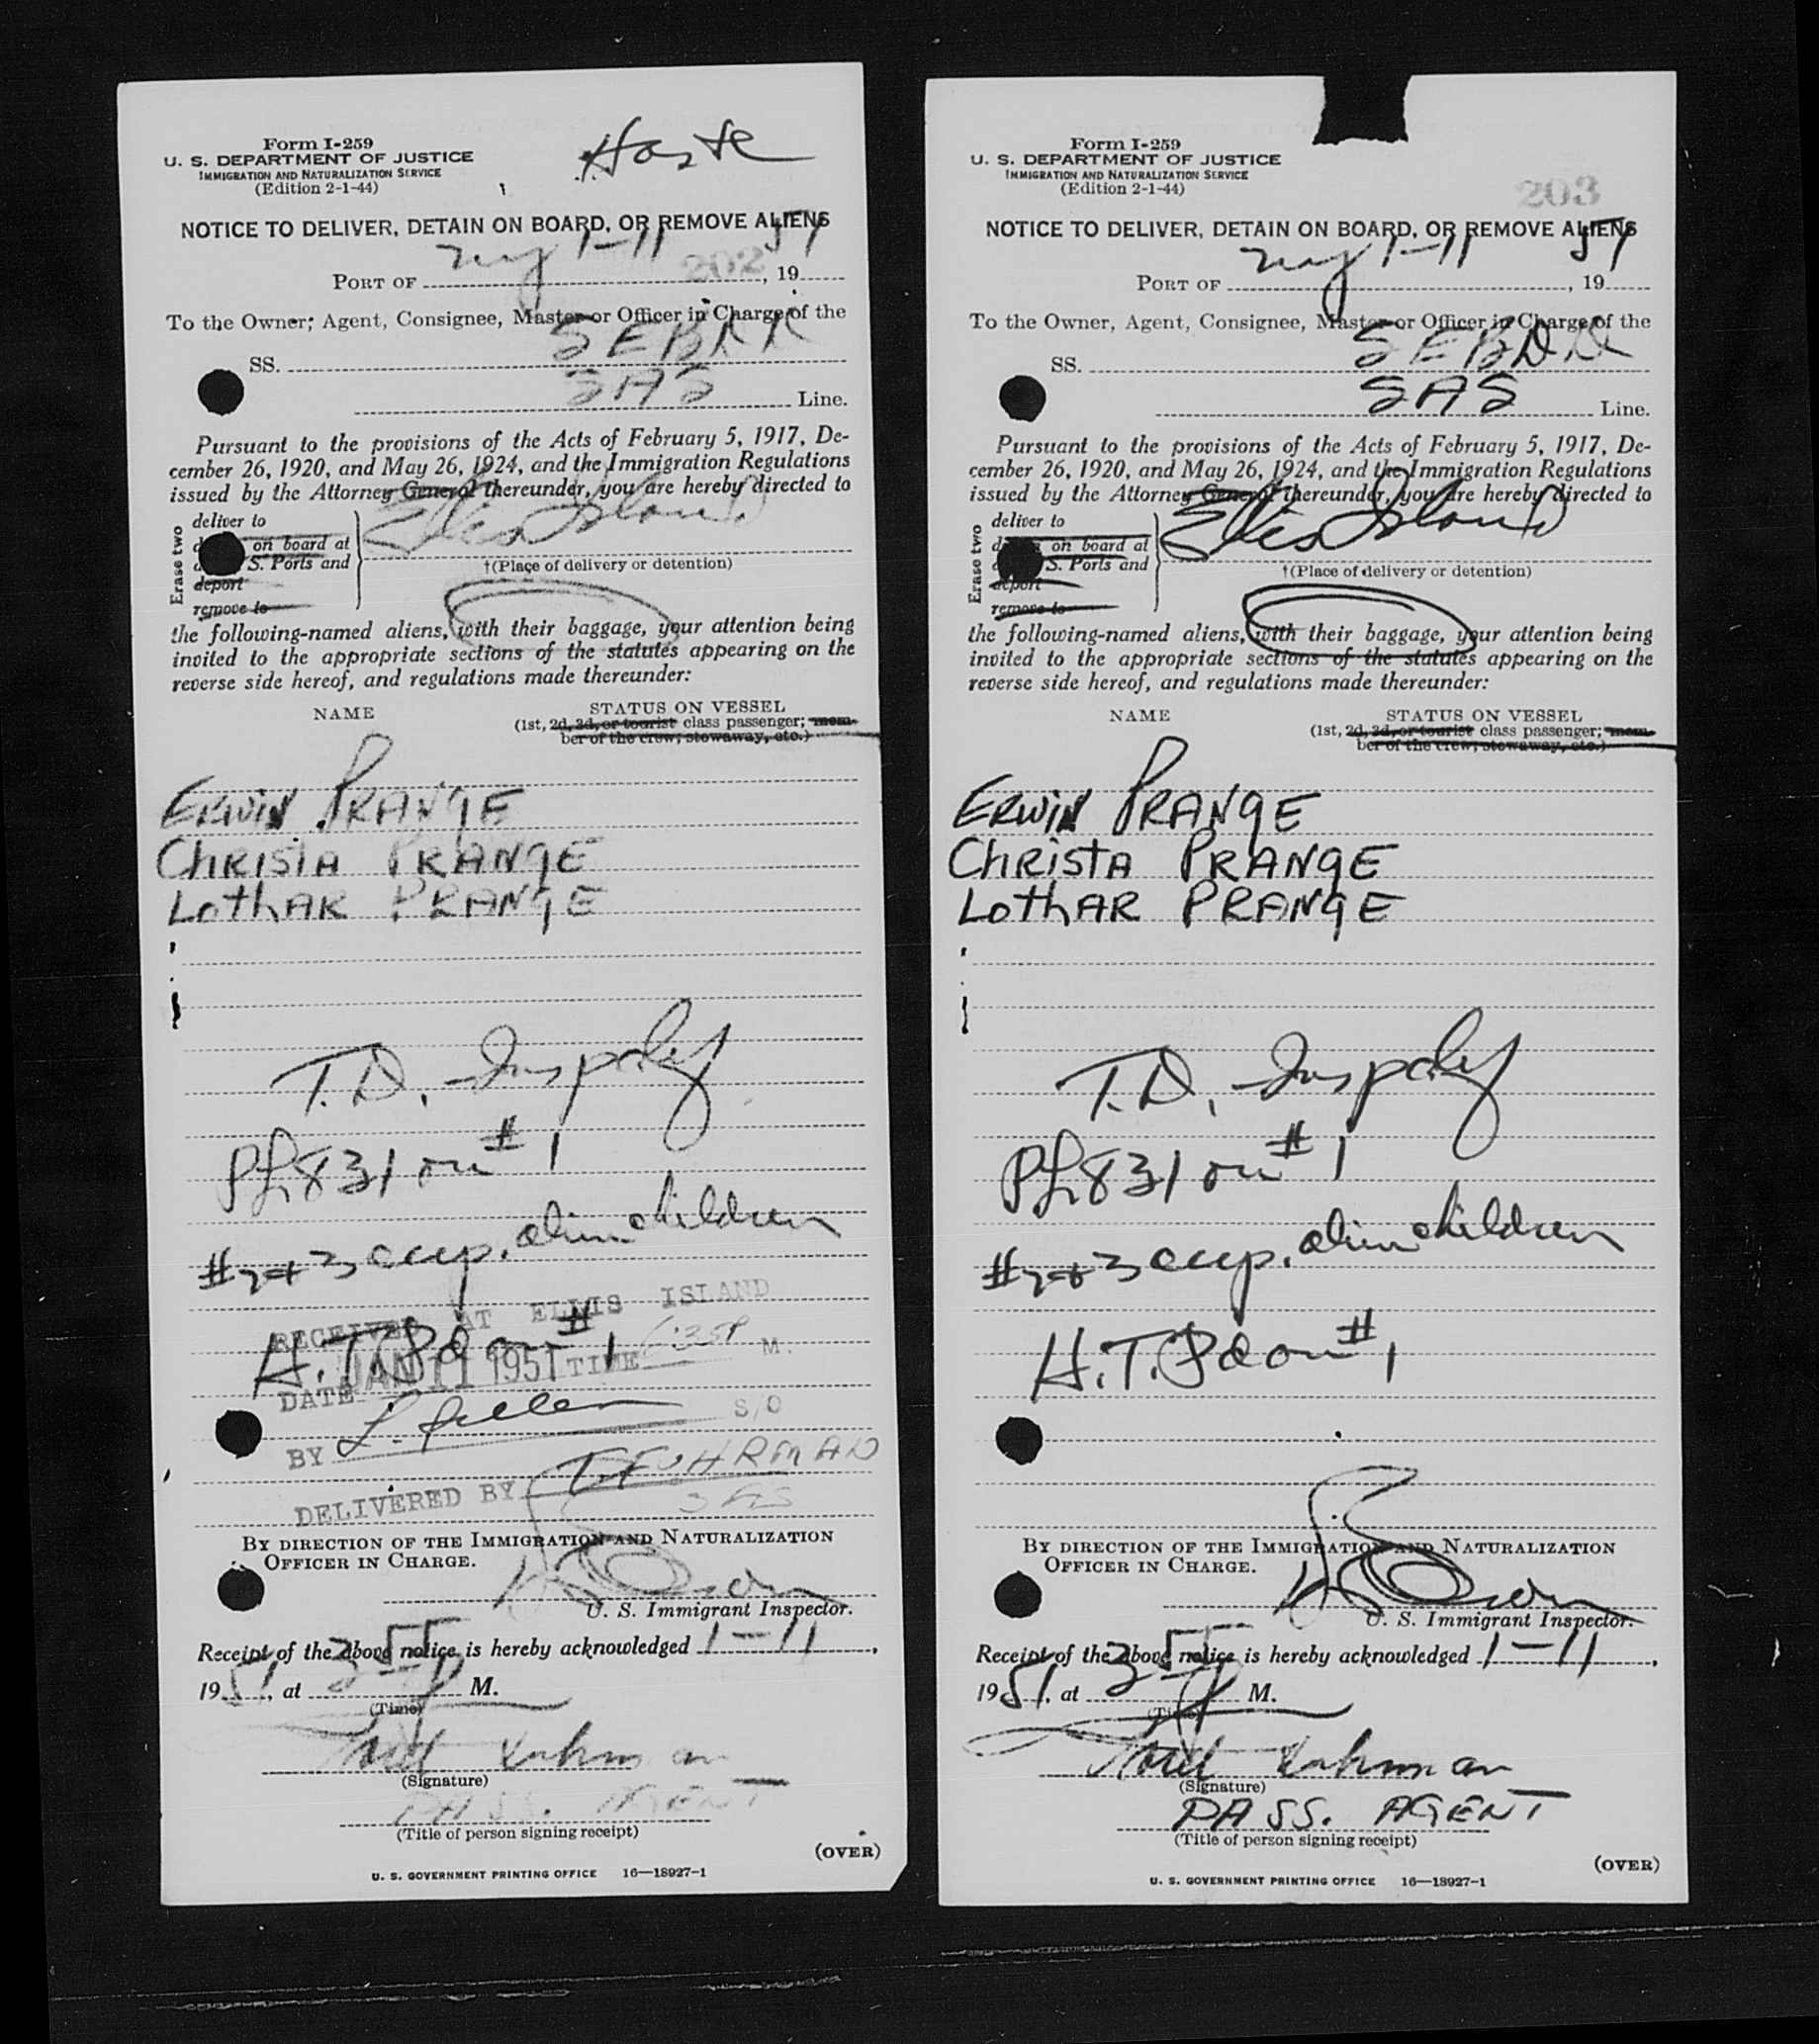 Form I-259
U. S. DEPARTMENT OF JUSTICE
IMMIGRATION AND NATURALIZATION SERVICE
(Edition 2-1-44)
NOTICE TO DELIVER, DETAIN ON BOARD, OR REMOVE ALIENS
202
PORT OF NY 1-11, 1951
To the Owner, Agent, Consignee, Master or Officer in Charge of the
SS. SEBKK
SAS Line.
Pursuant to the provisions of the Acts of February 5, 1917, De-
cember 26, 1920, and May 26, 1924, and the Immigration Regulations
issued by the Attorney General thereunder, you are hereby directed to
Erase two
deliver to
on board at
S. Ports and
deport
remove to
Ellis Island
†(Place of delivery or detention)
the following-named aliens, with their baggage, your attention being
invited to the appropriate sections of the statutes appearing on the
reverse side hereof, and regulations made thereunder:
NAME
STATUS ON VESSEL
(1st, 2d, 3d, or tourist class passenger; mem-
ber of the crew; stowaway, etc.)
ERWIN PRANGE
ChRISTA PRANGE
LothAR PRANGE
T.D.
831 on #1
#2+3 accp. alien children
H.T. on #1
RECEIVED AT ELLIS ISLAND
DATE JAN 11 1951 TIME M.
BY S/O
DELIVERED BY T. FUHRMAN
SAS
BY DIRECTION OF THE IMMIGRATION AND NATURALIZATION
OFFICER IN CHARGE.
U. S. Immigrant Inspector.
Receipt of the above notice is hereby acknowledged 1-11,
1951, at 355 P M.
(Time)
(Signature)
PASS. AGENT
(Title of person signing receipt)
(OVER)
U. S. GOVERNMENT PRINTING OFFICE 16—18927-1
Form I-259
U. S. DEPARTMENT OF JUSTICE
IMMIGRATION AND NATURALIZATION SERVICE
(Edition 2-1-44)
203
NOTICE TO DELIVER, DETAIN ON BOARD, OR REMOVE ALIENS
PORT OF NY 1-11, 1951
To the Owner, Agent, Consignee, Master or Officer in Charge of the
SS. SEBDD
SAS Line.
Pursuant to the provisions of the Acts of February 5, 1917, De-
cember 26, 1920, and May 26, 1924, and the Immigration Regulations
issued by the Attorney General thereunder, you are hereby directed to
Erase two
deliver to
on board at
S. Ports and
deport
remove to
Ellis Island
†(Place of delivery or detention)
the following-named aliens, with their baggage, your attention being
invited to the appropriate sections of the statutes appearing on the
reverse side hereof, and regulations made thereunder:
NAME
STATUS ON VESSEL
(1st, 2d, 3d, or tourist class passenger; mem-
ber of the crew; stowaway, etc.)
ERWIN PRANGE
ChRISTA PRANGE
LothAR PRANGE
T.D.
831 on #1
#2+3 accp. alien children
H.T. on #1
BY DIRECTION OF THE IMMIGRATION AND NATURALIZATION
OFFICER IN CHARGE.
U. S. Immigrant Inspector.
Receipt of the above notice is hereby acknowledged 1-11,
1951, at 355 P M.
(Time)
(Signature)
PASS. AGENT
(Title of person signing receipt)
(OVER)
U. S. GOVERNMENT PRINTING OFFICE 16—18927-1